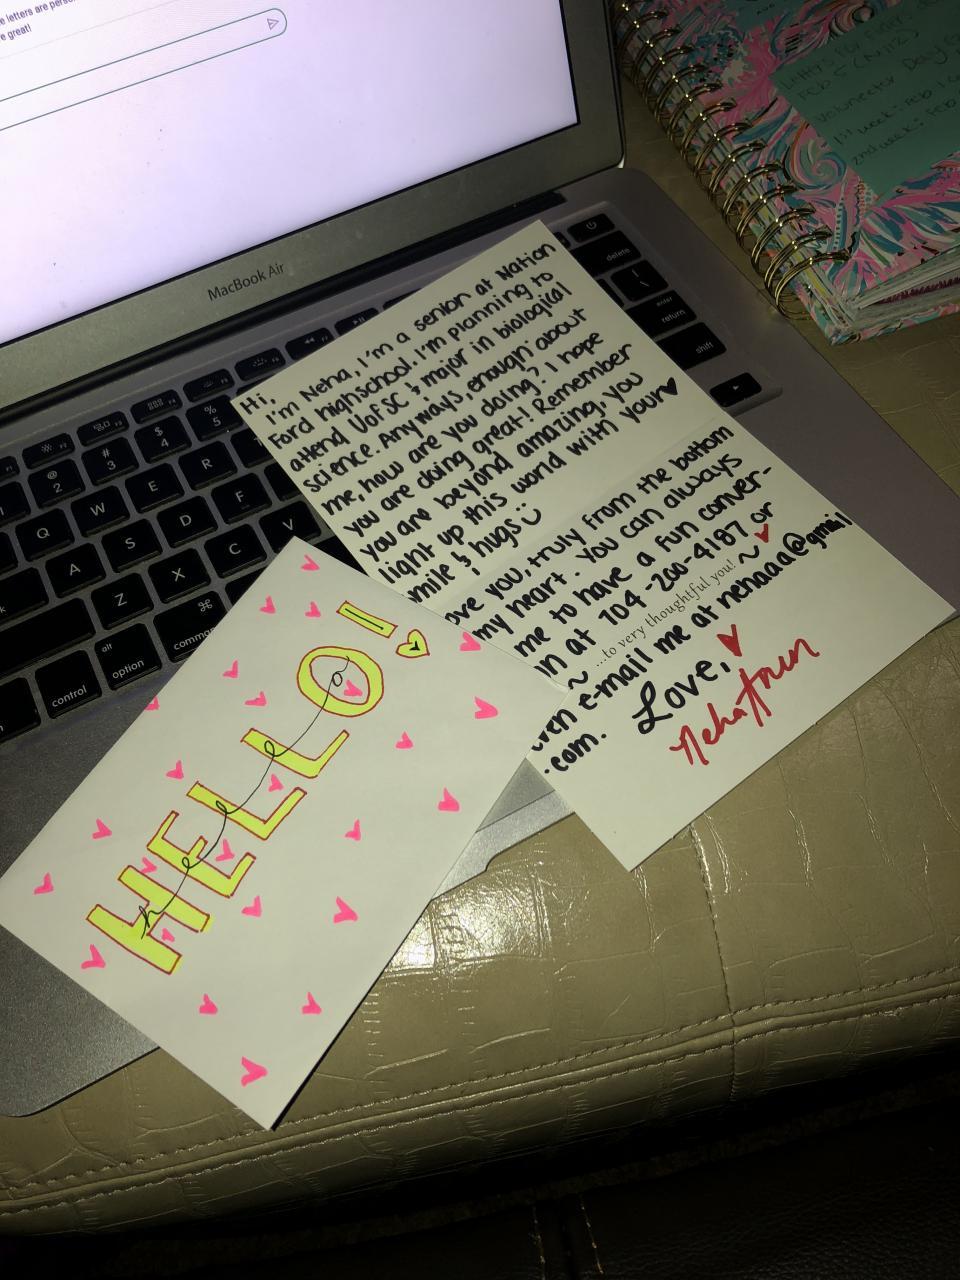 e letters are perso
e great!
MacBook Air
Hi,
I'm Neha, I'm a senior at Nation
Ford highschool. I'm planning to
attend UofSC & major in biological
science. Anyways, enough about
me, how are you doing? I hope
you are doing great! Remember
you are beyond amazing, you
light up this world with your
mile & hugs
ove you, truly from the bottom
my heart. You can always
me to have a fun conver-
n at 704-200-4187 or
...to very thoughtful you!
ven e-mail me at nehaaa@gmail
.com.
Love,
Neha
HELLO!
hello
Feb 5
Volunteer
1st week: Feb
2nd week: Feb
delete
enter
return
shift
%
5
$
4
#
3
@
2
Q
W
E
R
A
S
D
F
Z
X
C
V
control
alt
option
⌘
comm